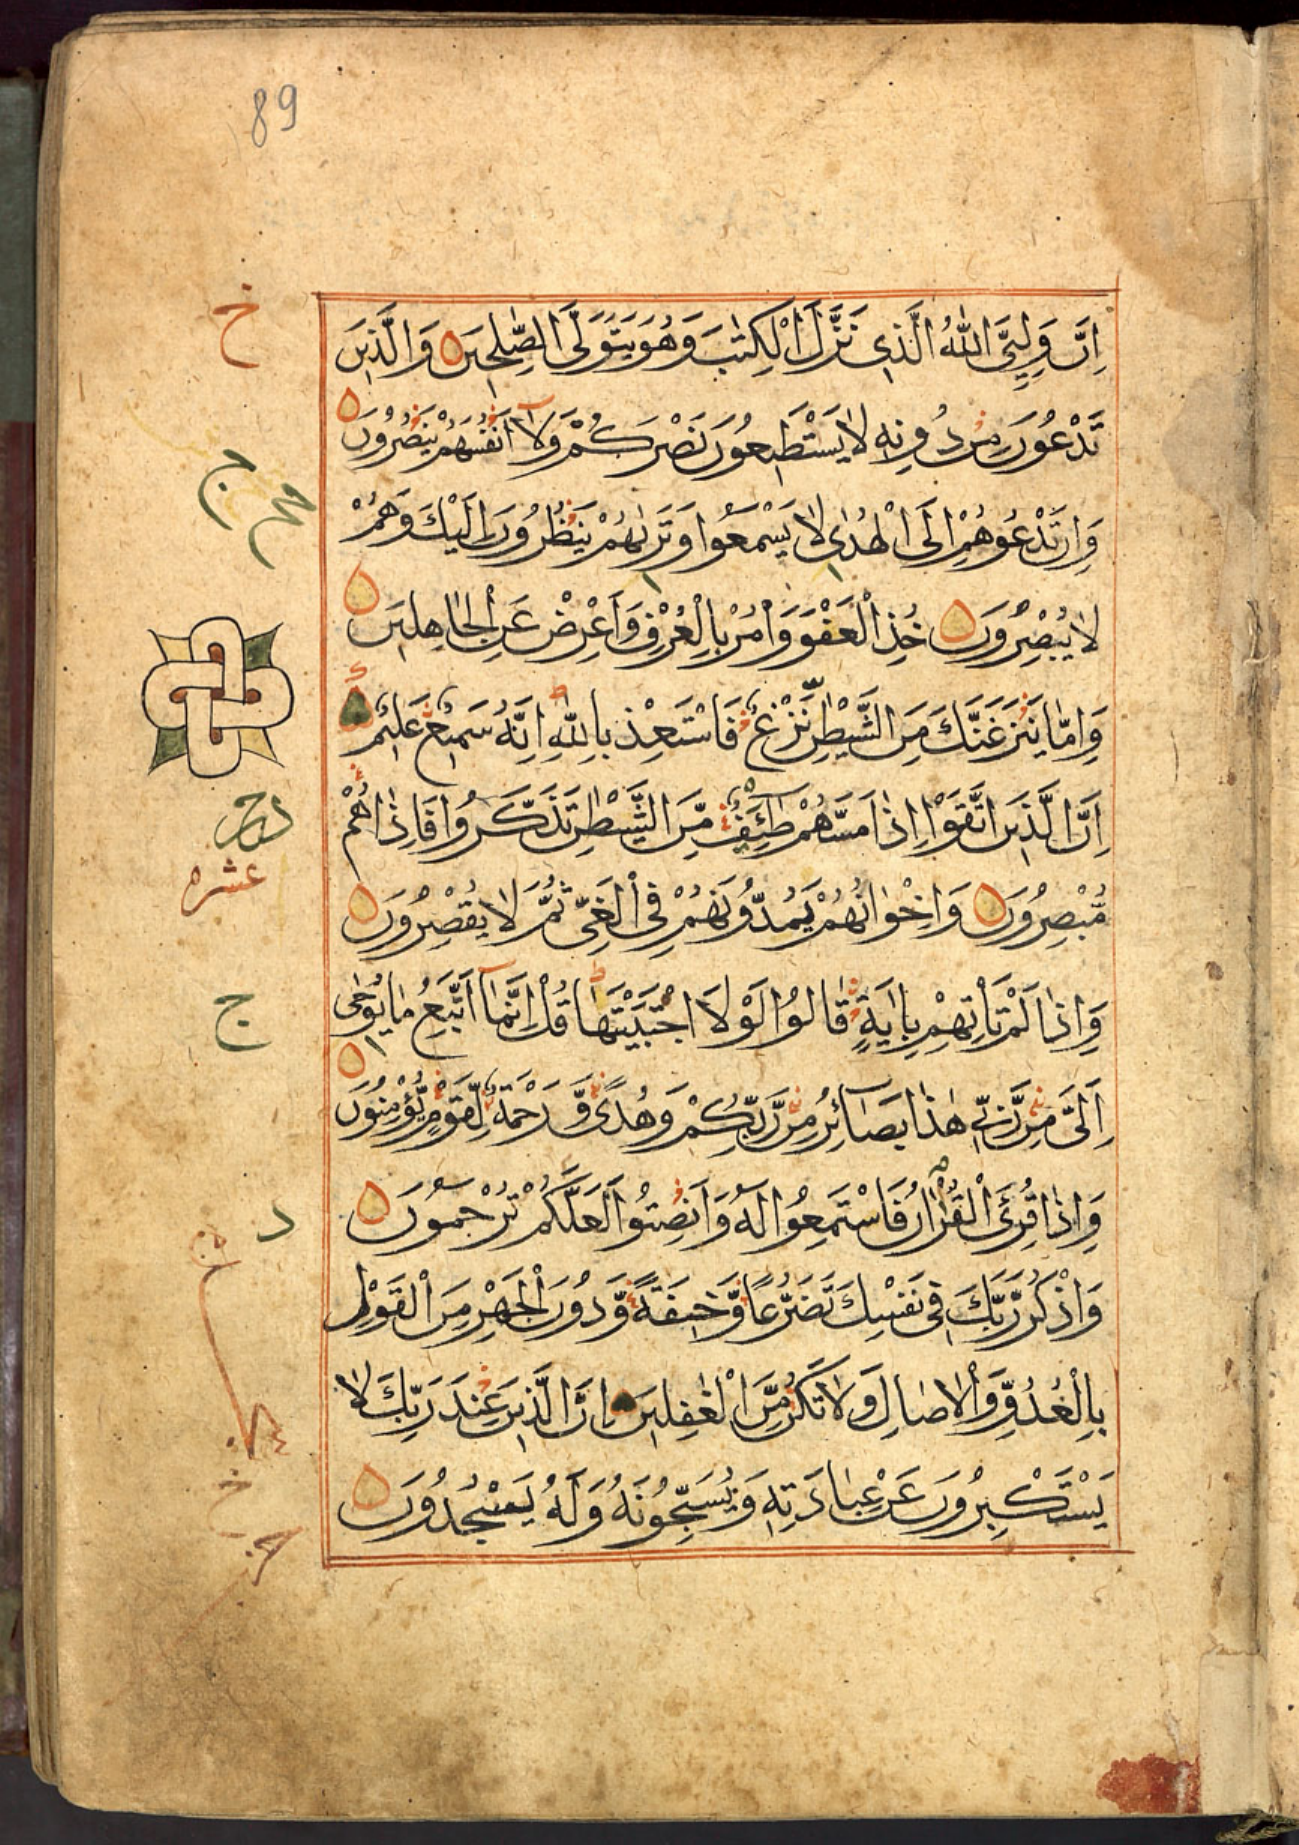 89
اِنَّ وَلِيِّيَ اللّٰهُ الَّذِى نَزَّلَ الْكِتٰبَ وَهُوَ يَتَوَلَّى الصّٰلِحِينَ وَالَّذِينَ
تَدْعُونَ مِنْ دُونِهِ لَا يَسْتَطِيعُونَ نَصْرَكُمْ وَلَآ اَنْفُسَهُمْ يَنْصُرُونَ
وَاِنْ تَدْعُوهُمْ اِلَى الْهُدٰى لَا يَسْمَعُوا وَتَرٰىهُمْ يَنْظُرُونَ اِلَيْكَ وَهُمْ
لَا يُبْصِرُونَ خُذِ الْعَفْوَ وَاْمُرْ بِالْعُرْفِ وَاَعْرِضْ عَنِ الْجَاهِلِينَ
وَاِمَّا يَنْزَغَنَّكَ مِنَ الشَّيْطٰنِ نَزْغٌ فَاسْتَعِذْ بِاللّٰهِ اِنَّهُ سَمِيعٌ عَلِيمٌ
اِنَّ الَّذِينَ اتَّقَوْا اِذَا مَسَّهُمْ طَائِفٌ مِّنَ الشَّيْطٰنِ تَذَكَّرُوا فَاِذَا هُمْ
عشره
مُّبْصِرُونَ وَاِخْوَانُهُمْ يَمُدُّونَهُمْ فِى الْغَيِّ ثُمَّ لَا يُقْصِرُونَ
وَاِذَا لَمْ تَاْتِهِمْ بِاٰيَةٍ قَالُوا لَوْلَا اجْتَبَيْتَهَا قُلْ اِنَّمَآ اَتَّبِعُ مَا يُوحٰى
ج
اِلَيَّ مِنْ رَّبِّى هٰذَا بَصَآئِرُ مِنْ رَّبِّكُمْ وَهُدًى وَّرَحْمَةٌ لِّقَوْمٍ يُّؤْمِنُونَ
وَاِذَا قُرِئَ الْقُرْاٰنُ فَاسْتَمِعُوا لَهُ وَاَنْصِتُوا لَعَلَّكُمْ تُرْحَمُونَ
د
وَاذْكُرْ رَّبَّكَ فِى نَفْسِكَ تَضَرُّعًا وَّخِيفَةً وَّدُونَ الْجَهْرِ مِنَ الْقَوْلِ
بِالْغُدُوِّ وَالْاٰصَالِ وَلَا تَكُنْ مِّنَ الْغٰفِلِينَ اِنَّ الَّذِينَ عِنْدَ رَبِّكَ لَا
يَسْتَكْبِرُونَ عَنْ عِبَادَتِهِ وَيُسَبِّحُونَهُ وَلَهُ يَسْجُدُونَ